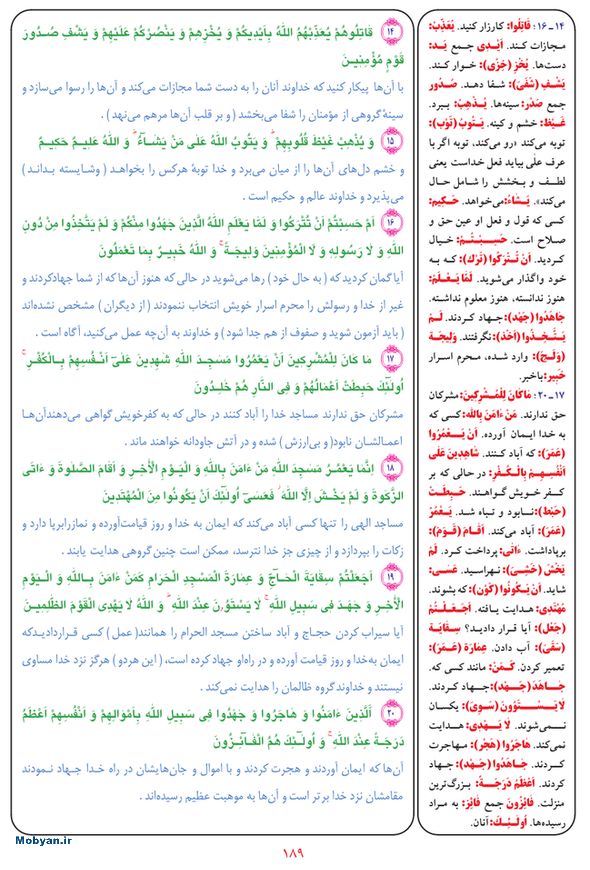 ۱۴ قَاتِلُوهُمْ يُعَذِّبْهُمُ اللهُ بِأَيْدِيكُمْ وَ يُخْزِهِمْ وَ يَنْصُرْكُمْ عَلَيْهِمْ وَ يَشْفِ صُدُورَ
قَوْمٍ مُؤْمِنِينَ
با آن‌ها پیکار کنید که خداوند آنان را به دست شما مجازات می‌کند و آن‌ها را رسوا می‌سازد و
سینهٔ گروهی از مؤمنان را شفا می‌بخشد ( و بر قلب آن‌ها مرهم می‌نهد ) .
۱۵ وَ يُذْهِبْ غَيْظَ قُلُوبِهِمْ وَ يَتُوبُ اللهُ عَلَى مَنْ يَشَاءُ وَ اللهُ عَلِيمٌ حَكِيمٌ
و خشم دل‌های آن‌ها را از میان می‌برد و خدا توبهٔ هرکس را بخواهد ( وشایسته بداند )
می‌پذیرد و خداوند عالم و حکیم است .
۱۶ أَمْ حَسِبْتُمْ أَنْ تُتْرَكُوا وَ لَمَّا يَعْلَمِ اللهُ الَّذِينَ جَهَدُوا مِنْكُمْ وَ لَمْ يَتَّخِذُوا مِنْ دُونِ
اللهِ وَ لَا رَسُولِهِ وَ لَا الْمُؤْمِنِينَ وَلِيجَةً وَ اللهُ خَبِيرٌ بِمَا تَعْمَلُونَ
آیا گمان کردید که ( به حال خود ) رها می‌شوید در حالی که هنوز آن‌ها که از شما جهادکردند و
غیر از خدا و رسولش را محرم اسرار خویش انتخاب ننمودند ( از دیگران ) مشخص نشده‌اند
( باید آزمون شوید و صفوف از هم جدا شود ) و خداوند به آن‌چه عمل می‌کنید، آگاه است .
۱۷ مَا كَانَ لِلْمُشْرِكِينَ أَنْ يَعْمُرُوا مَسٰجِدَ اللهِ شٰهِدِينَ عَلَى أَنْفُسِهِمْ بِالْكُفْرِ
أُولٰئِكَ حَبِطَتْ أَعْمَالُهُمْ وَ فِى النَّارِ هُمْ خٰلِدُونَ
مشرکان حق ندارند مساجد خدا را آباد کنند در حالی که به کفرخویش گواهی می‌دهندآن‌ها
اعمالشان نابود( و بی‌ارزش ) شده و در آتش جاودانه خواهند ماند .
۱۸ إِنَّمَا يَعْمُرُ مَسٰجِدَ اللهِ مَنْ ءَامَنَ بِاللهِ وَ الْيَوْمِ الْأٰخِرِ وَ أَقَامَ الصَّلَوٰةَ وَ ءَاتَى
الزَّكَوٰةَ وَ لَمْ يَخْشَ إِلَّا اللهَ فَعَسَى أُولٰئِكَ أَنْ يَكُونُوا مِنَ الْمُهْتَدِينَ
مساجد الهی را تنها کسی آباد می‌کند که ایمان به خدا و روز قیامت‌آورده و نمازرابرپا دارد و
زکات را بپردازد و از چیزی جز خدا نترسد، ممکن است چنین گروهی هدایت یابند .
۱۹ أَجَعَلْتُمْ سِقَايَةَ الْحَاجِّ وَ عِمَارَةَ الْمَسْجِدِ الْحَرَامِ كَمَنْ ءَامَنَ بِاللهِ وَ الْيَوْمِ
الْأٰخِرِ وَ جٰهَدَ فِى سَبِيلِ اللهِ لَا يَسْتَوُونَ عِنْدَ اللهِ وَ اللهُ لَا يَهْدِى الْقَوْمَ الظّٰلِمِينَ
آیا سیراب کردن حجاج و آباد ساختن مسجد الحرام را همانند( عمل ) کسی قراردادیدکه
ایمان به‌خدا و روز قیامت آورده و در راه‌او جهاد کرده است، ( این هردو ) هرگز نزد خدا مساوی
نیستند و خداوندگروه ظالمان را هدایت نمی‌کند .
۲۰ أَلَّذِينَ ءَامَنُوا وَ هَاجَرُوا وَ جٰهَدُوا فِى سَبِيلِ اللهِ بِأَمْوَالِهِمْ وَ أَنْفُسِهِمْ أَعْظَمُ
دَرَجَةً عِنْدَ اللهِ وَ أُولٰئِكَ هُمُ الْفَائِزُونَ
آن‌ها که ایمان آوردند و هجرت کردند و با اموال و جان‌هایشان در راه خدا جهاد نمودند
مقامشان نزد خدا برتر است و آن‌ها به موهبت عظیم رسیده‌اند .
۱۴ـ۱۶؛ قَاتِلُوا: کارزار کنید. يُعَذِّبْ:
مجازات کند. أَيْدِى جمع يَد:
دست‌ها. يُخْزِ (خِزْى): خوار کند.
يَشْفِ (شَفْى): شفا دهد. صُدُور
جمع صَدْر: سینه‌ها. يُذْهِبْ: ببرد.
غَيْظَ: خشم و کینه. يَتُوبُ (تَوْب):
توبه می‌کند «رو می‌کند، توبه اگر با
عرف علی بیاید فعل خداست یعنی
لطف و بخشش را شامل حال
می‌کند». يَشَاءُ: می‌خواهد. حَكِيم:
کسی که قول و فعل او عین حق و
صلاح است. حَسِبْتُمْ: خیال
کردید. أَنْ تُتْرَكُوا (تَرْك): که به
خود واگذار می‌شوید. لَمَّا يَعْلَمْ:
هنوز ندانسته، هنوز معلوم نداشته.
جَاهَدُوا (جَهْد): جهاد کردند. لَمْ
يَتَّخِذُوا (أَخْذ): نگرفتند. وَلِيجَة
(وَلْج): وارد شده، محرم اسرار
خَبِير: باخبر.
۱۷ـ۲۰؛ مَا كَانَ لِلْمُشْرِكِينَ: مشرکان
حق ندارند. مَنْ ءَامَنَ بِاللهِ: کسی که
به خدا ایمان آورده. أَنْ يَعْمُرُوا
(عَمْر): که آباد کنند. شَاهِدِينَ عَلَى
أَنْفُسِهِمْ بِالْكُفْرِ: در حالی که بر
کفر خویش گواهند. حَبِطَتْ
(حَبْط): نابود و تباه شد. يَعْمُرُ
(عَمْر): آباد می‌کند. أَقَامَ (قَوْم):
برپاداشت. ءَاتَى: پرداخت کرد. لَمْ
يَخْشَ (خَشْى): نهراسید. عَسَى:
شاید. أَنْ يَكُونُوا (كَوْن): که بشوند.
مُهْتَدِى: هدایت یافته. أَجَعَلْتُمْ
(جَعْل): آیا قرار دادید؟ سِقَايَة
(سَقْى): آب دادن. عِمَارَة (عَمْر):
تعمیر کردن. كَمَنْ: مانند کسی که.
جَاهَدَ (جَهْد): جهاد کردند.
لَا يَسْتَوُونَ (سَوِىَ): یکسان
نمی‌شوند. لَا يَهْدِى: هدایت
نمی‌کند. هَاجَرُوا (هَجْر): مهاجرت
کردند. جَاهَدُوا (جَهْد): جهاد
کردند. أَعْظَمُ دَرَجَةً: بزرگ‌ترین
منزلت. فَائِزُون جمع فَائِز: به مراد
رسیده‌ها. أُولٰئِكَ: آنان.
Mobyan.ir
۱۸۹